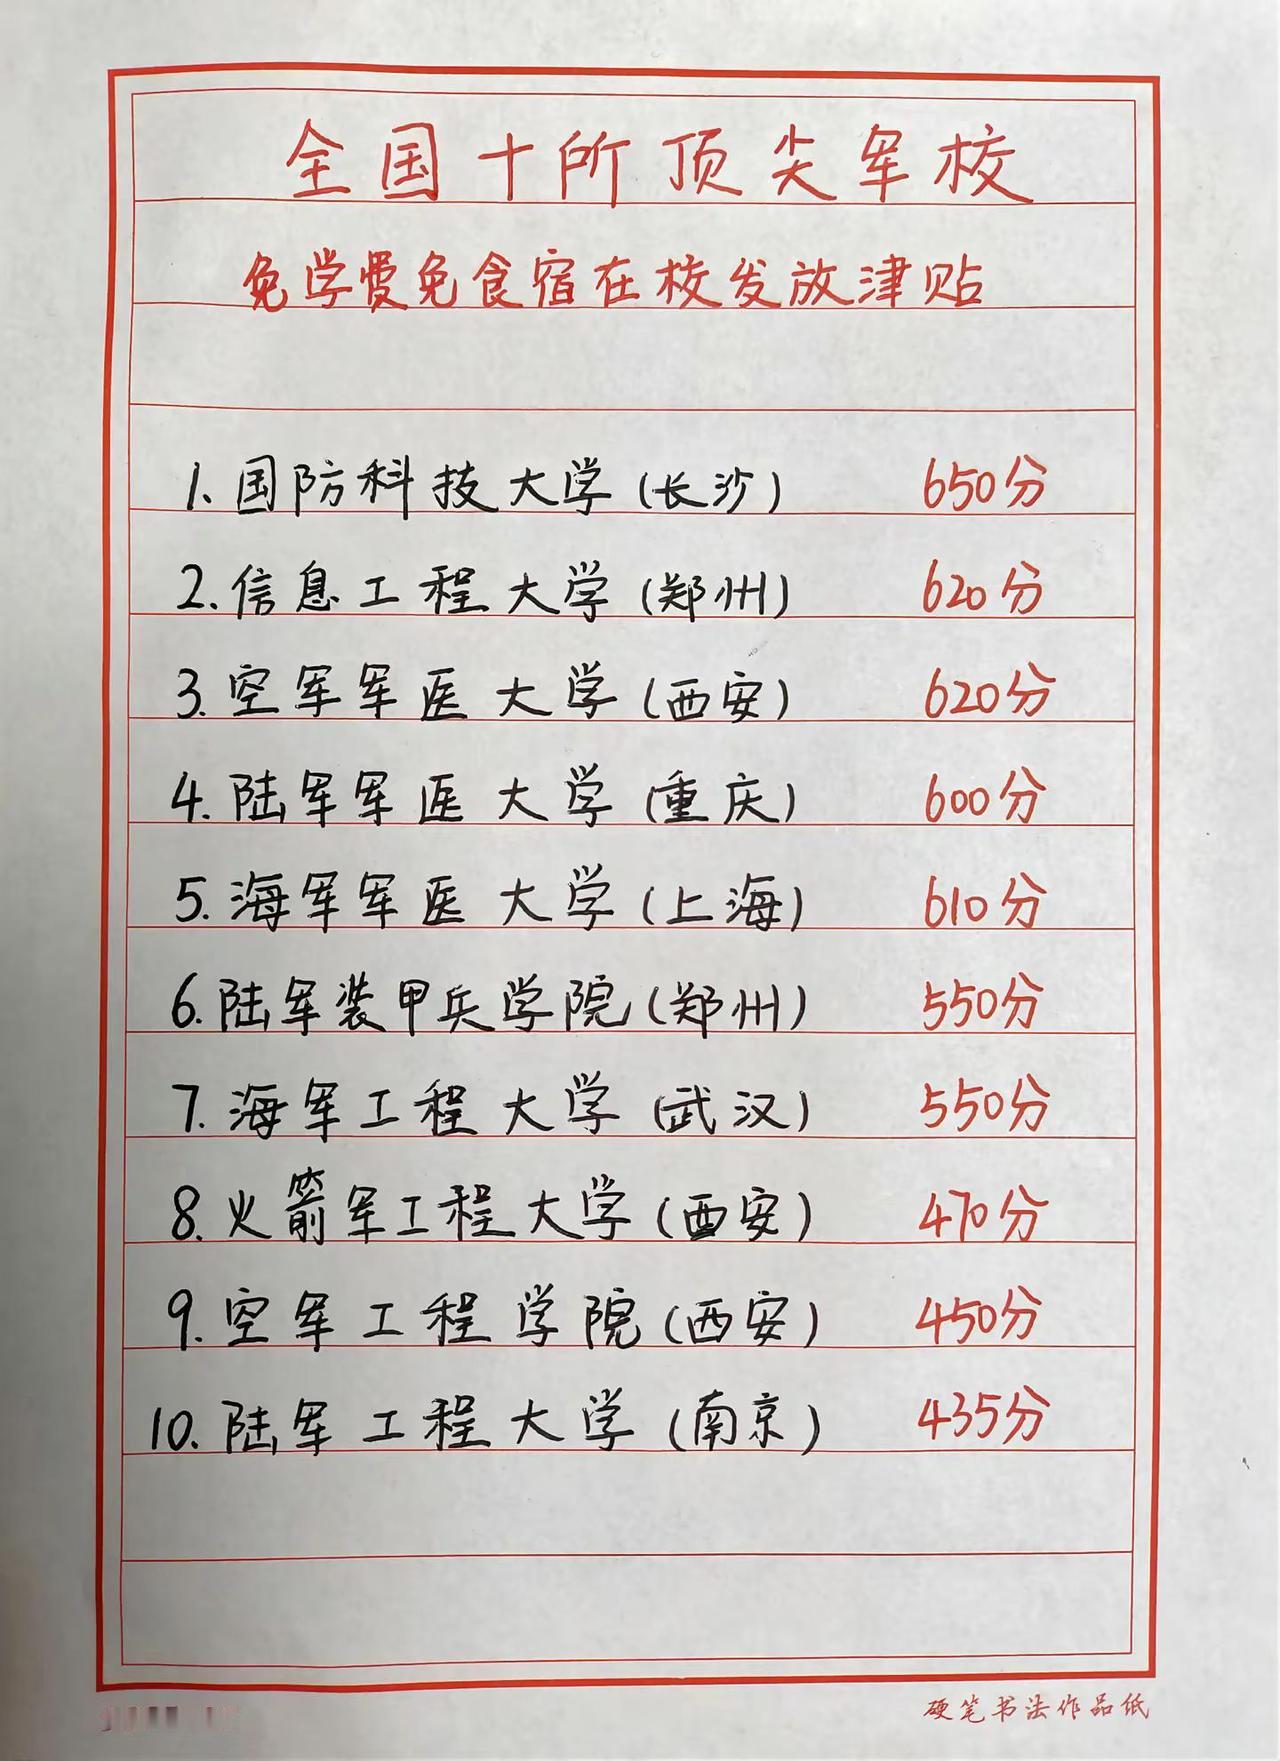 全国十所顶尖军校
免学费免食宿在校发放津贴
1.国防科技大学(长沙) 650分
2.信息工程大学(郑州) 620分
3.空军军医大学(西安) 620分
4.陆军军医大学(重庆) 600分
5.海军军医大学(上海) 610分
6.陆军装甲兵学院(郑州) 550分
7.海军工程大学(武汉) 550分
8.火箭军工程大学(西安) 470分
9.空军工程学院(西安) 450分
10.陆军工程大学(南京) 435分
硬笔书法作品纸